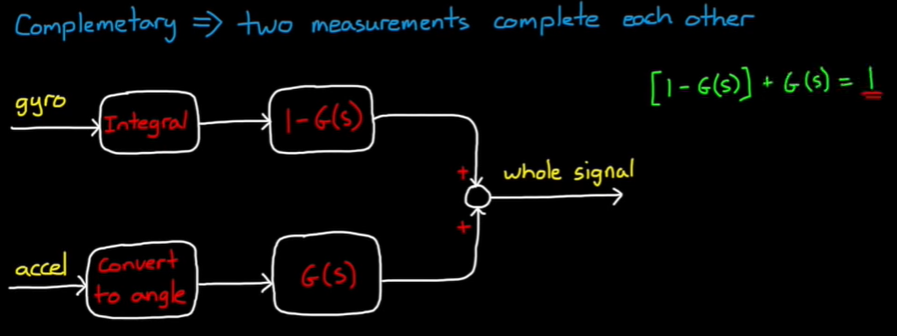 Complemetary ⇒ two measurements complete each other
[1-G(s)] + G(s) = 1
gyro
Integral
1-G(s)
+
whole signal
+
accel
Convert
to angle
G(s)